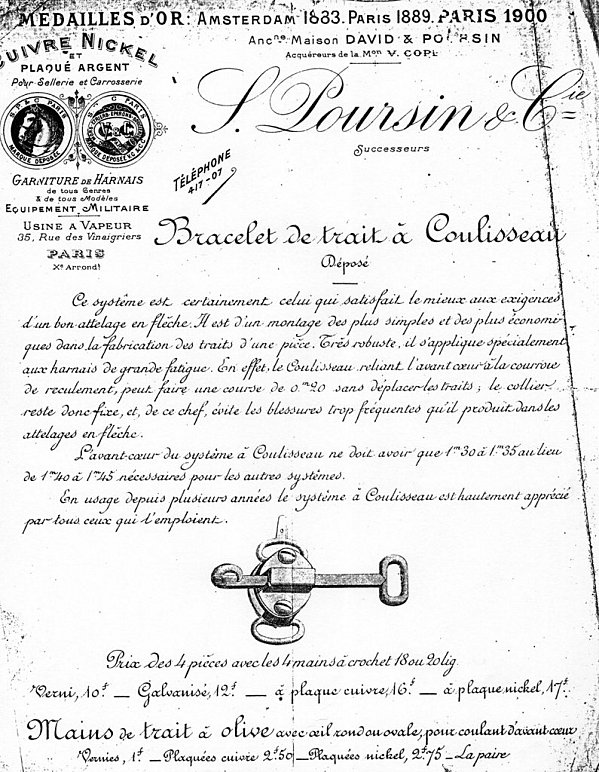 MEDAILLES D'OR: AMSTERDAM 1883. PARIS 1889. PARIS 1900
CUIVRE NICKEL
ET
PLAQUÉ ARGENT
Pour Sellerie et Carrosserie
Ancne Maison DAVID & POURSIN
Acquéreurs de la Mon V. COPL
S. Poursin & Cie
Successeurs
TÉLÉPHONE
417-07
MARQUE DÉPOSÉE
GARNITURE DE HARNAIS
de tous Genres
& de tous Modèles
EQUIPEMENT MILITAIRE
USINE A VAPEUR
35, Rue des Vinaigriers
PARIS
Xe Arrondt
Bracelet de trait à Coulisseau
Déposé
Ce système est certainement celui qui satisfait le mieux aux exigences
d'un bon attelage en flèche. Il est d'un montage des plus simples et des plus économi-
ques dans la fabrication des traits d'une pièce. Très robuste, il s'applique spécialement
aux harnais de grande fatigue. En effet, le Coulisseau reliant l'avant cœur à la courroie
de reculement, peut faire une course de 0.m20 sans déplacer les traits; le collier
reste donc fixe, et, de ce chef, évite les blessures trop fréquentes qu'il produit dans les
attelages en flèche.
L'avant-cœur du système à Coulisseau ne doit avoir que 1m30 à 1m35 au lieu
de 1m40 à 1m45 nécessaires pour les autres systèmes.
En usage depuis plusieurs années le système à Coulisseau est hautement apprécié
par tous ceux qui l'emploient.
Prix des 4 pièces avec les 4 mains à crochet 18 ou 20 lig.
Verni, 10f. — Galvanisé, 12f. — à plaque cuivre, 16f. — à plaque nickel, 17f.
Mains de trait à olive avec œil rond ou ovale, pour coulant d'avant cœur
Vernies, 1f — Plaquées cuivre 2f50 — Plaquées nickel, 2f75 — La paire